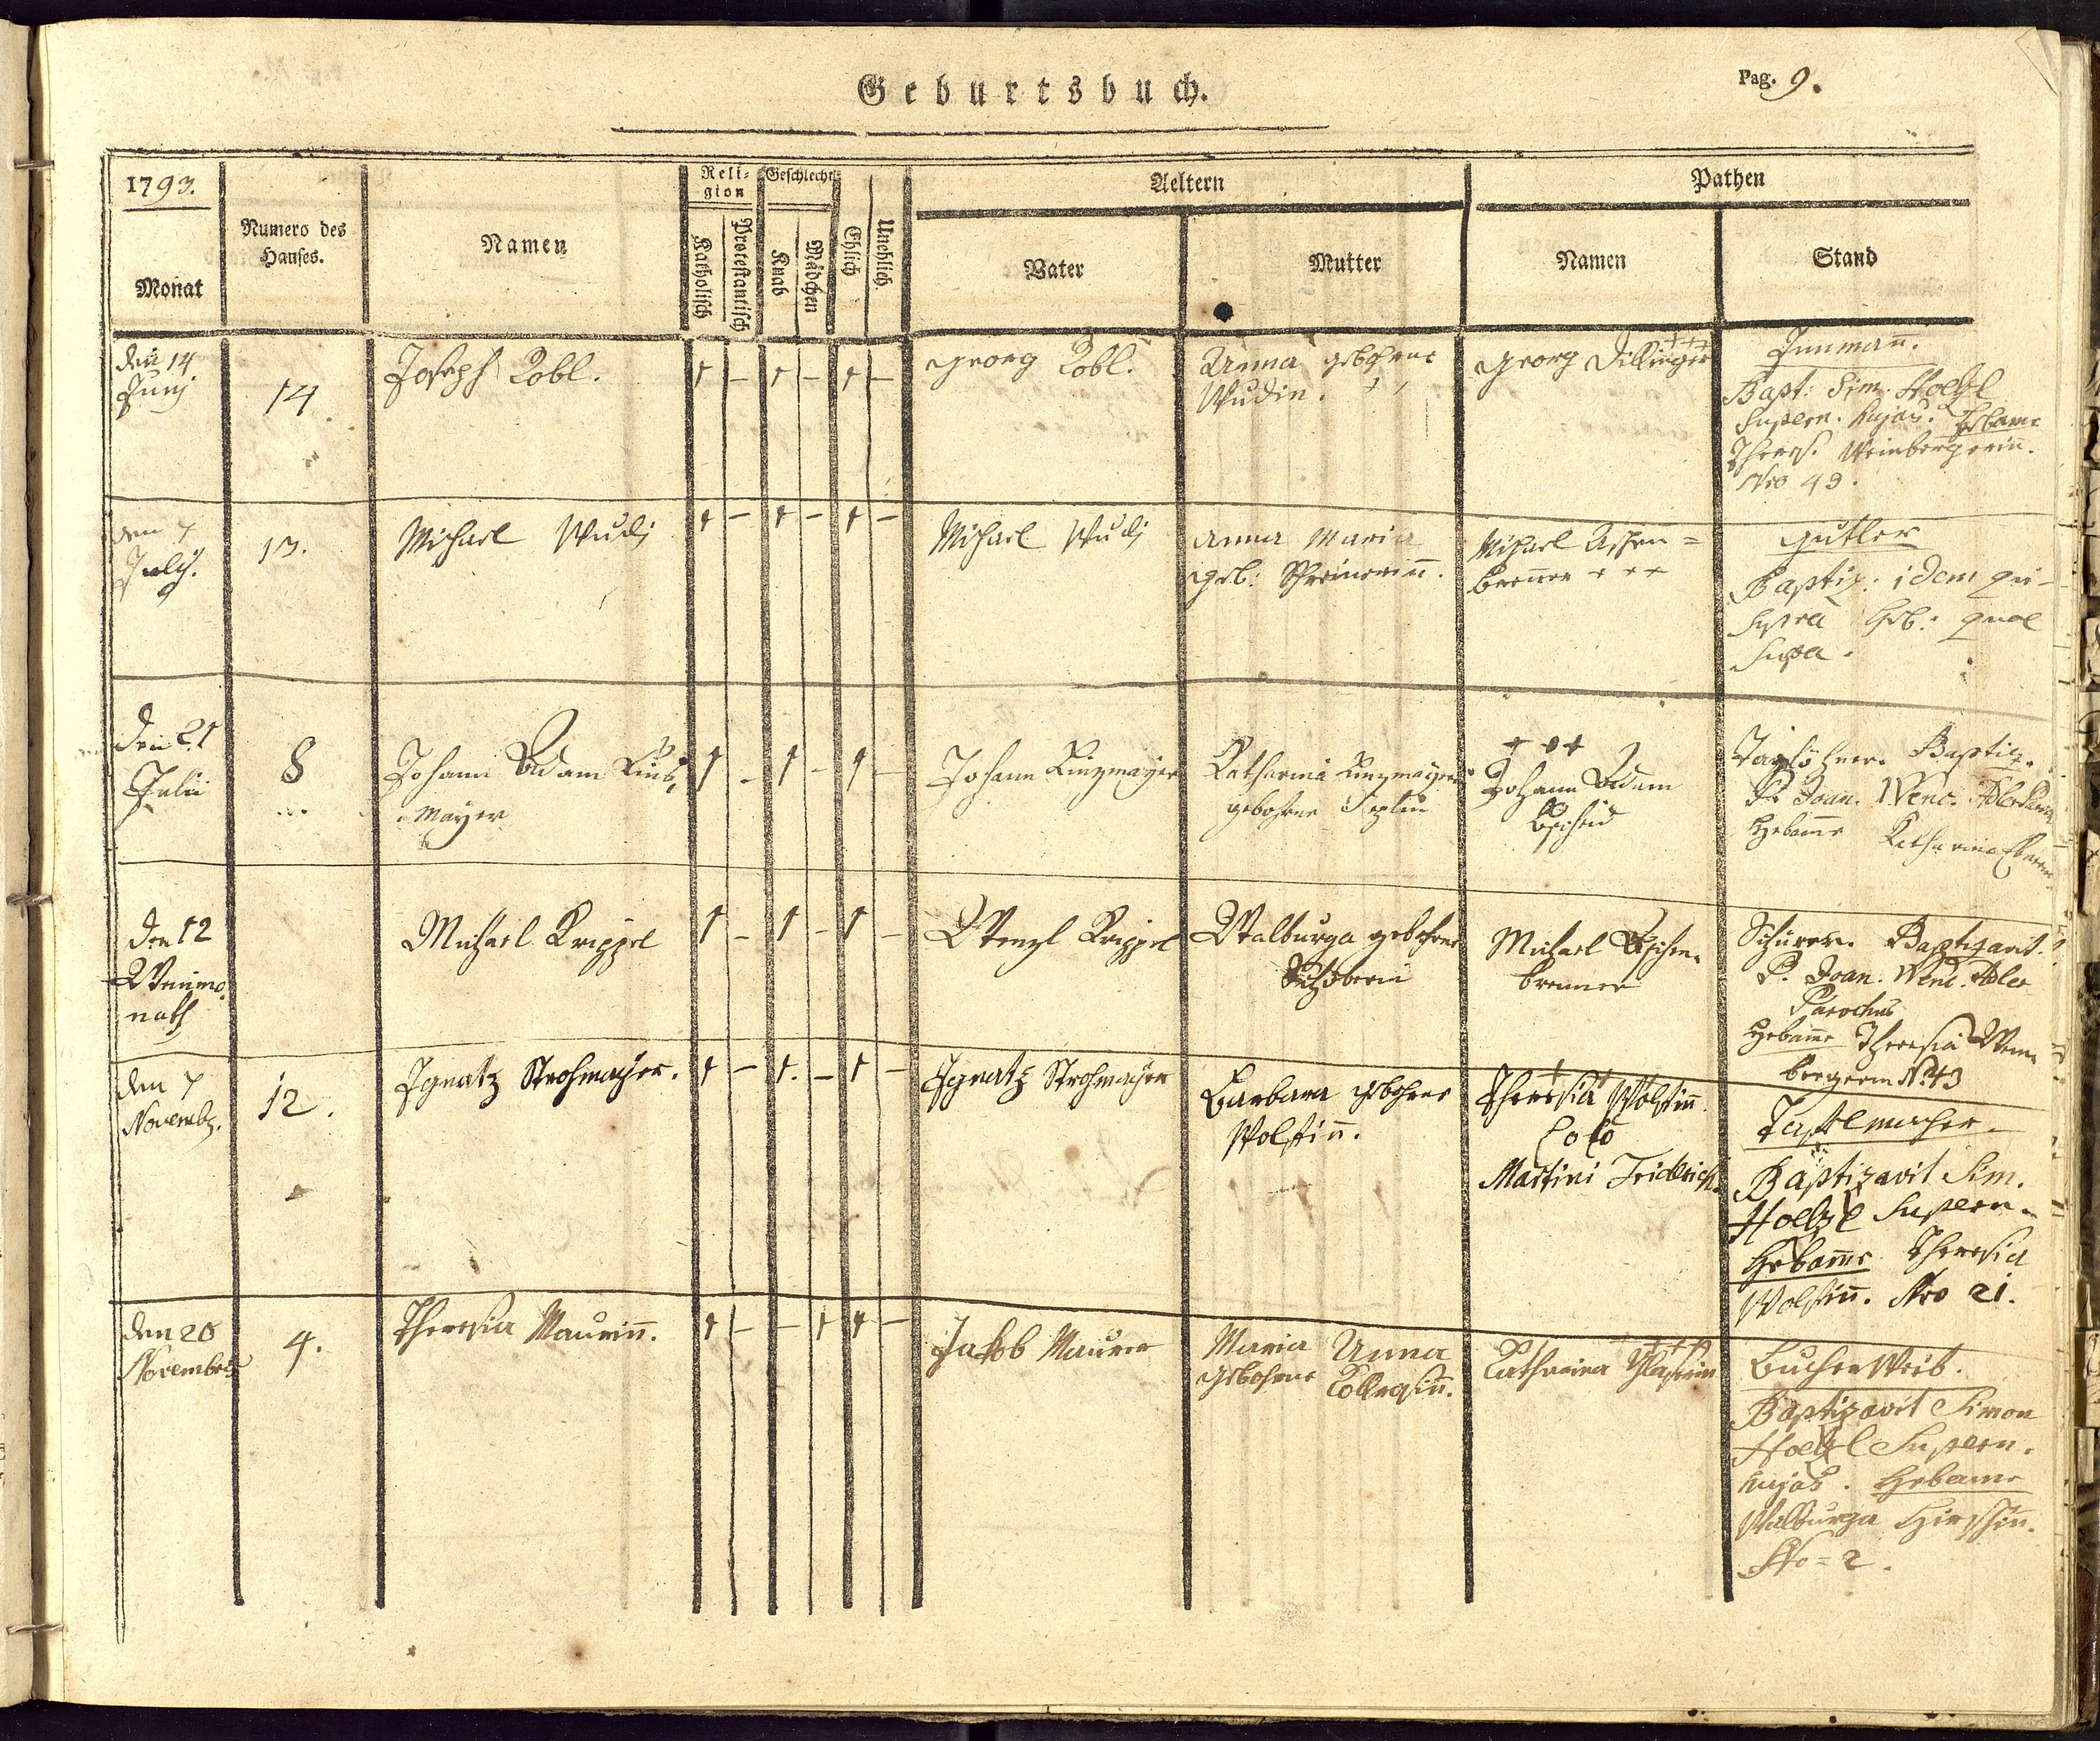 Geburtsbuch.
Pag. 9.
1793.
Monat
Numero des
Hauses.
Namen
Reli-
gion
Katholisch
Protestantisch
Geschlecht
Knab
Mädchen
Ehlich
Unehlich.
Aeltern
Vater
Mutter
Pathen
Namen
Stand
den 14
Junj
14
Joseph Zobl.
+ – + – + –
Georg Zobl.
Anna gebohrne
Wudin. + +
Georg Dillinger
+++
Innmañ.
Bapt: Sim. Hoelzl
Supern. hujas. Hebame
Theres. Weinbergerin̄.
Nro 49.
den 7
July.
13.
Michael Wudj
+ – + – + –
Michael Wudj
Anna Maria
geb: Schreinerin̄.
Michael Aschen=
breñer + + +
Gütler
Baptiz: idem qui
Supra Heb: quae
Supa.
den 21
Julii
8
Johann Adam
Mayer
+ – + – + –
Johann Kinzmayer
Katharina Kinzmayerin
gebohrne
+ + +
Johann Adam
Taglöhner. Baptiz.
P. Joan. Wenc. Adler
Hebam̄e Katharina
den 12
Weinmo
nath
Michael Krippel
+ – + – + –
Wenzl Krippel
Walburga gebohrne
Michael Aschen-
brenner
Schürer. Baptizavit.
P. Joan. Wenc. Adler
Parochus
Hebam̄e Theresia Wein
bergerin No 43
den 7
Novembr.
12.
Ignatz Strohmayer.
+ – + – + –
Ignatz Strohmayer
Barbara gebohrne
Wolfin̄.
Theresia Wolfin̄.
Loco
Martini Fridrich.
Tafelmacher.
Baptizavit Sim.
Hoelzl Supern.
Hebam̄e Theresia
Wolfin̄. Nro 21.
den 20
November
4.
Theresia Maurin̄.
+ – – + + –
Jakob Maurer
Maria Anna
gebohrne
Catharina
+++
Bucher Weib.
Baptizavit Simon
Hoelzl Supern.
hujas. Hebame
Walburga Hirschin̄.
Nro = 2.